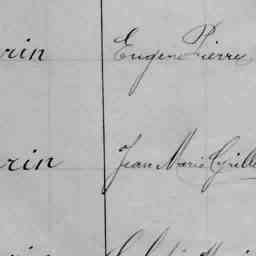 rin Eugène Pierre
rin Jean Marie Cyrille